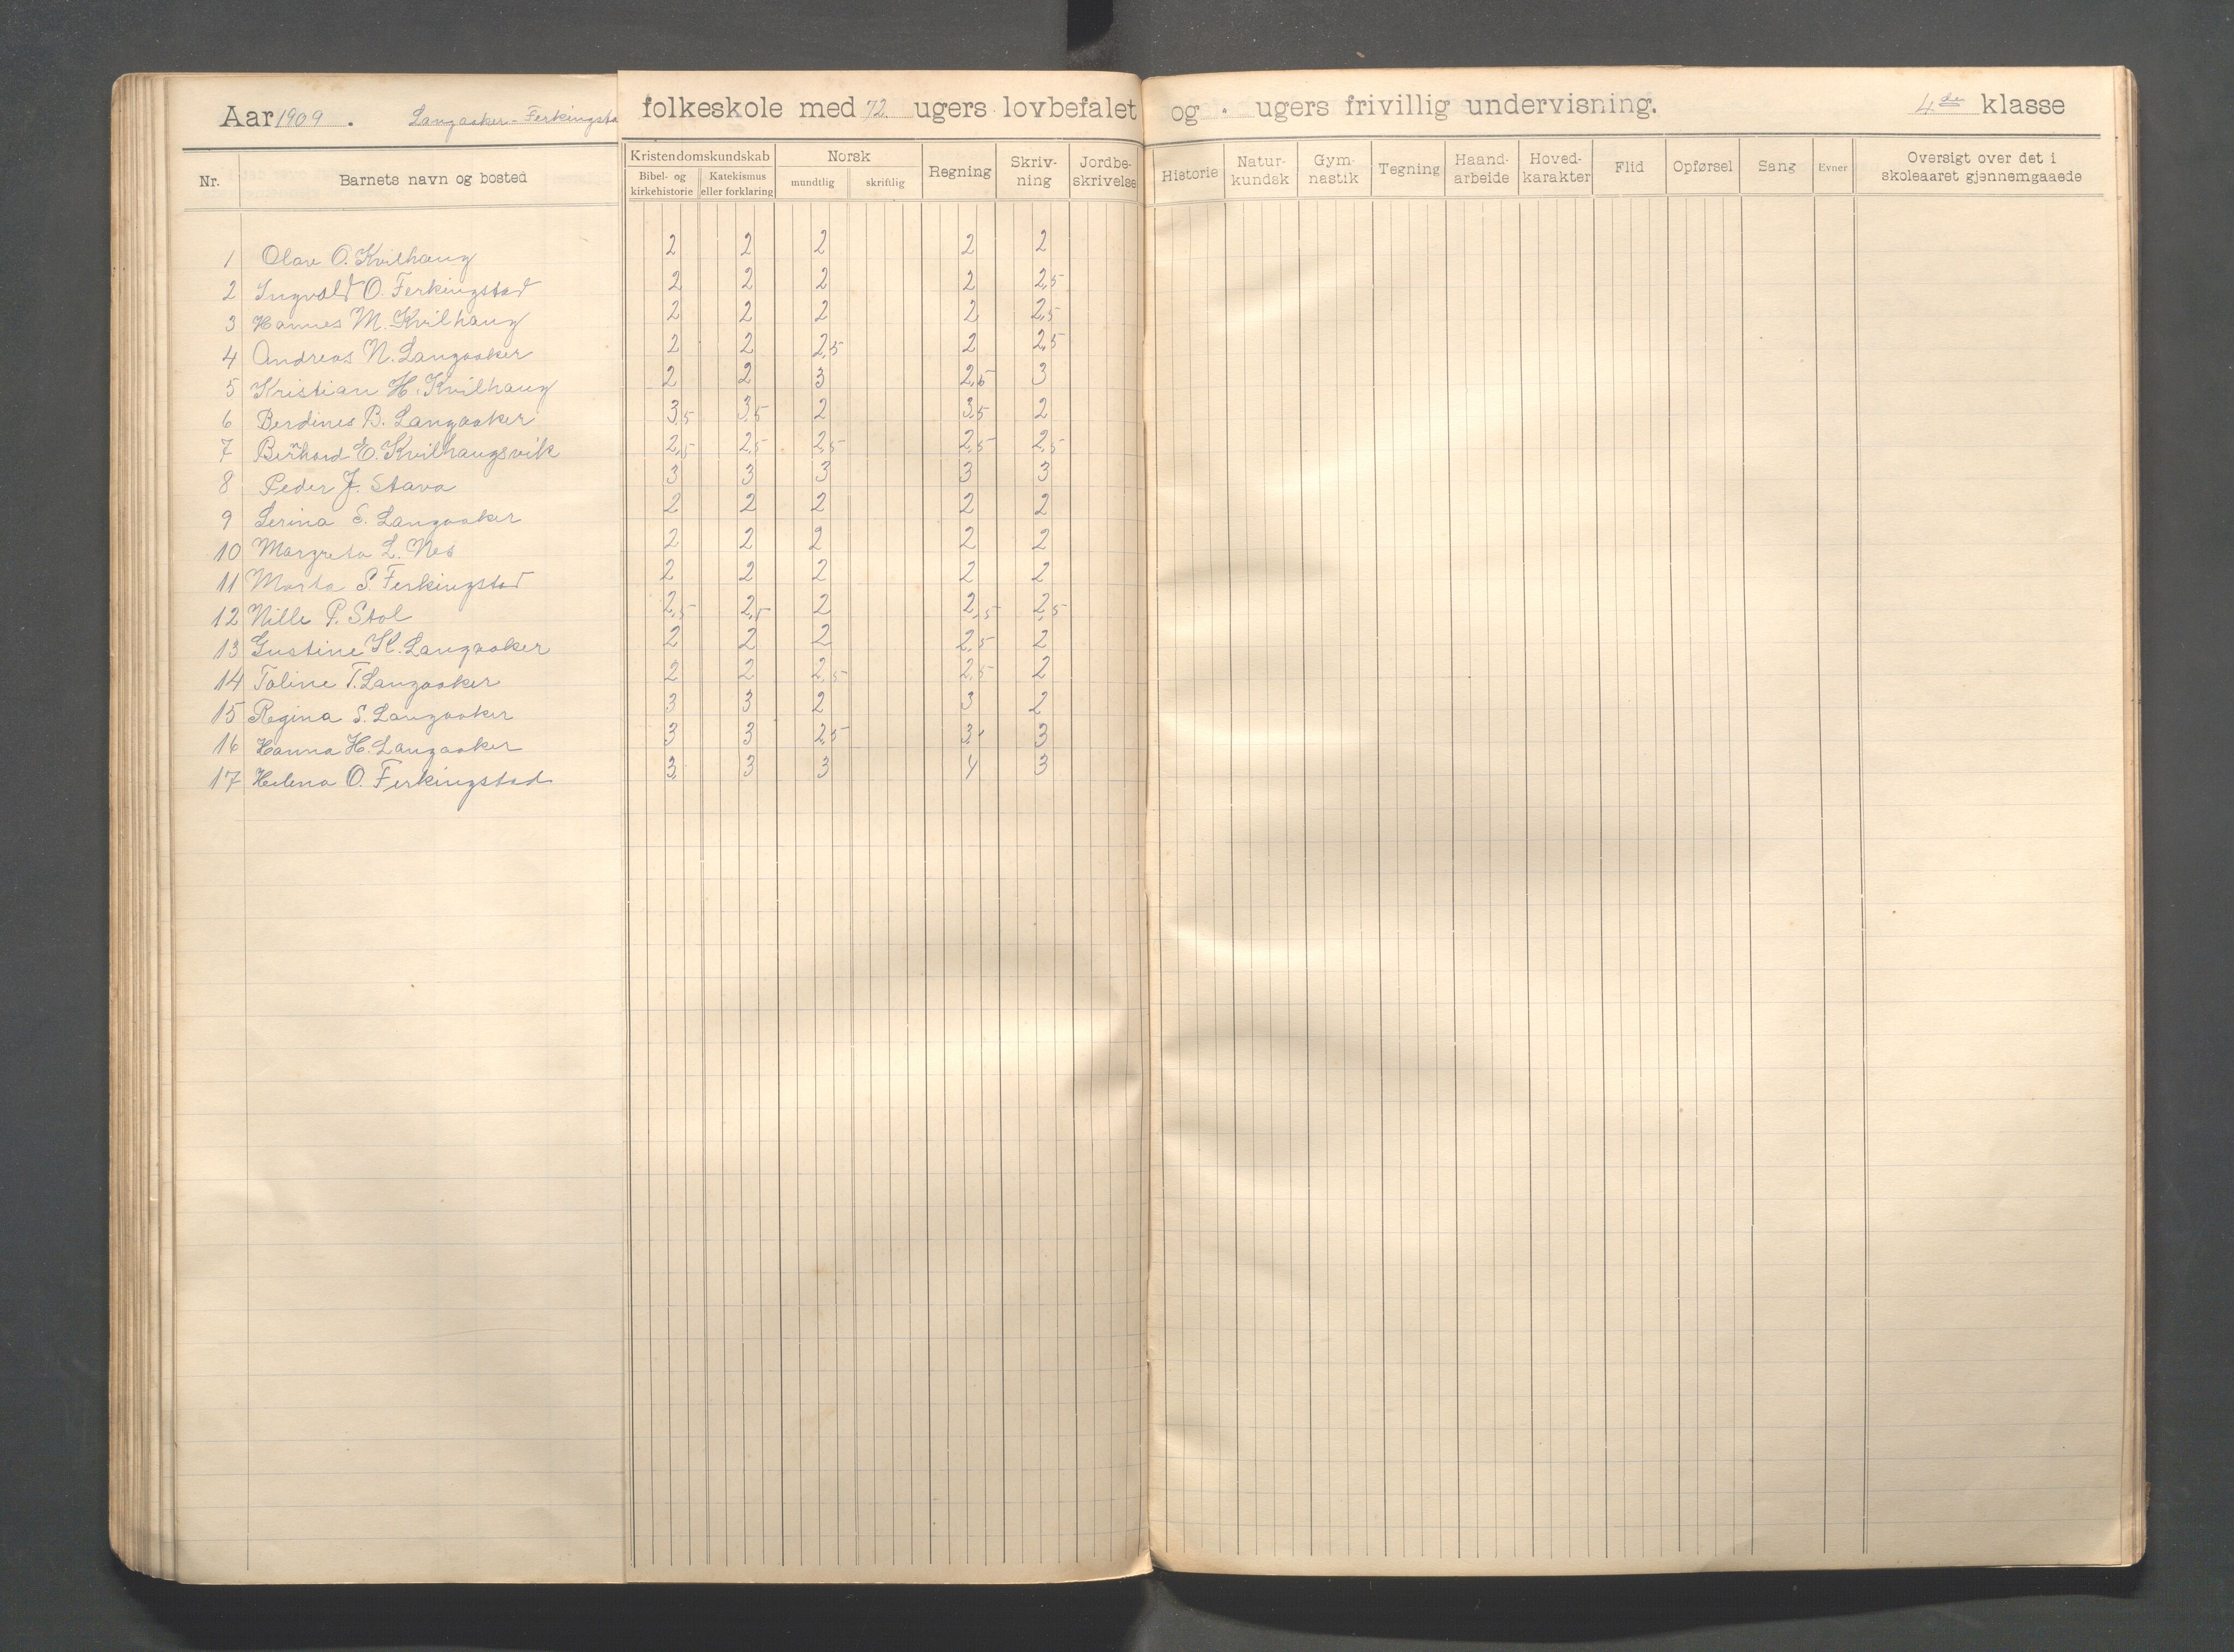 Aar 1909 . Langaaker-Ferkingsta folkeskole med 12. ugers lovbefalet og . ugers frivillig undervisning. 4de klasse
Nr. Barnets navn og bosted Kristendomskundskab Norsk Regning Skriv-ning Jordbe-skrivelse Historie Natur-kundsk Gym-nastik Tegning Haand-arbeide Hoved-karakter Flid Opførsel Sang Evner Oversigt over det i skoleaaret gjennemgaaede
Bibel- og kirkehistorie Katekismus eller forklaring mundtlig skriftlig
1 Olav O. Kvilhaug 2 2 2 2 2
2 Ingvald O. Ferkingstad 2 2 2 2 2,5
3 Hannes M. Kvilhaug 2 2 2 2 2,5
4 Andreas N. Langaaker 2 2 2,5 2 2,5
5 Kristian H. Kvilhaug 2 2 3 2,5 3
6 Berdines B. Langaaker 3,5 3,5 2 3,5 2
7 Bernhard E. Kvilhaugsvik 2,5 2,5 2,5 2,5 2,5
8 Peder J. Stava 3 3 3 3 3
9 Serina S. Langaaker 2 2 2 2 2
10 Margreta L. Nes 2 2 2 2 2
11 Marta S. Ferkingstad 2 2 2 2 2
12 Nille P. Stol 2,5 2,5 2 2,5 2,5
13 Gustine K. Langaaker 2 2 2 2,5 2
14 Taline T. Langaaker 2 2 2,5 2,5 2
15 Regina S. Langaaker 3 3 2 3 2
16 Hanna H. Langaaker 3 3 2,5 3, 3
17 Helena O. Ferkingstad 3 3 3 4 3